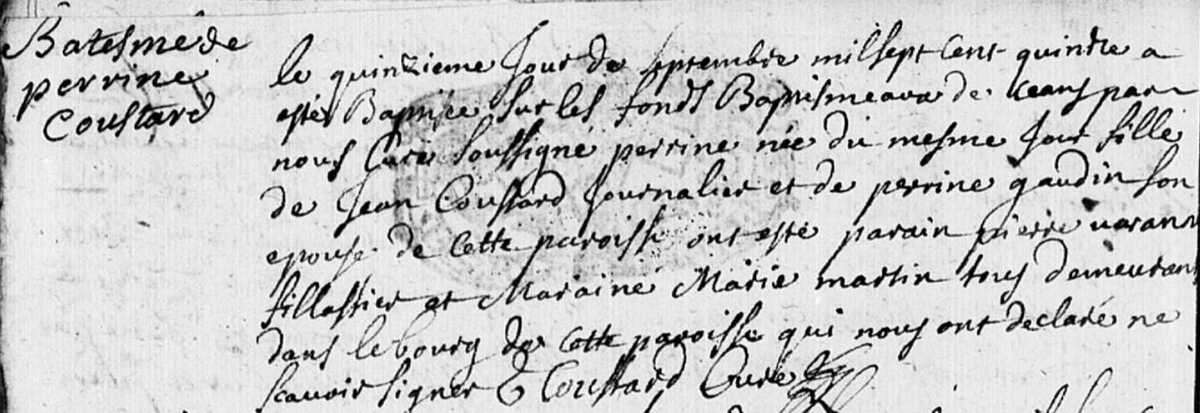 Batesme de
perrine
Coustard
le quinzieme Jour de Septembre mil sept Cent quinze a
esté Baptisée sur les fonds Baptismeaux de Ceans par
nous Curé Soussigné perrine née du mesme Jour fille
de Jean Coustard Journalier et de perrine gaudin son
epouse de Cette paroisse ont esté parain pierre
fillastier et Maraine Marie martin tous demeurans
dans le bourg de Cette paroisse qui nous ont declaré ne
scavoir signer Coustard Curé